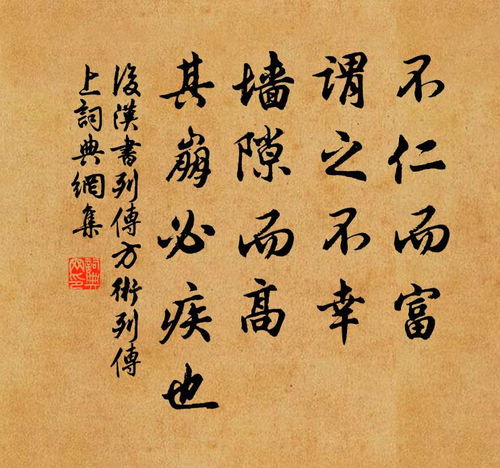 不仁而富
谓之不幸
墙隙而高
其崩必疾也
後漢書列傳方術列傳
上詞典網集